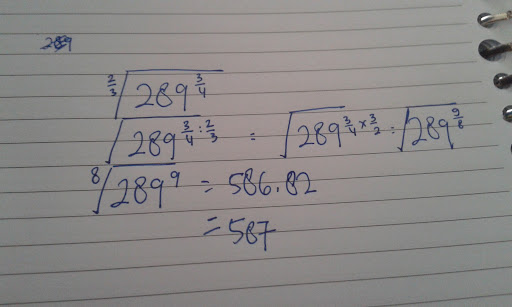 289
\sqrt[\frac{2}{3}]{289^{\frac{3}{4}}}
\sqrt{289^{\frac{3}{4} : \frac{2}{3}}} = \sqrt{289^{\frac{3}{4} \times \frac{3}{2}}} = \sqrt{289^{\frac{9}{8}}}
\sqrt[8]{289^9} = 586.82
= 587